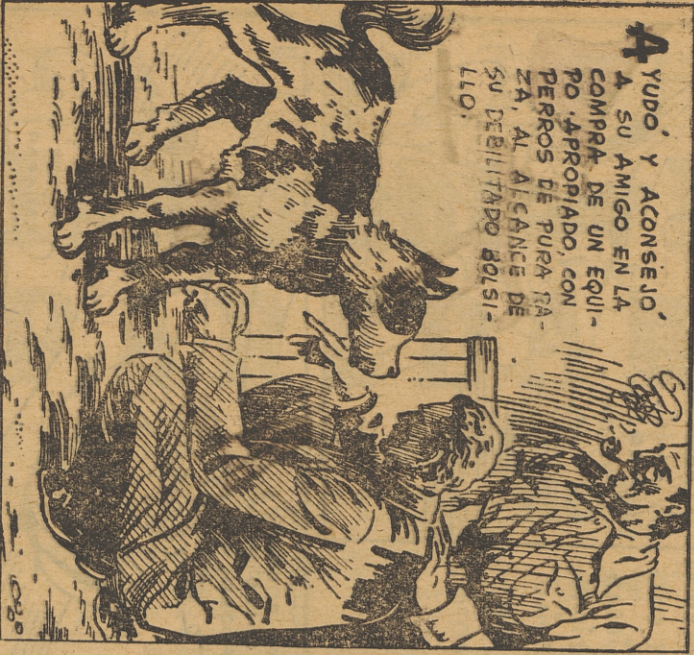 AYUDÓ Y ACONSEJÓ
A SU AMIGO EN LA
COMPRA DE UN EQUI-
PO APROPIADO, CON
PERROS DE PURA RA-
ZA, AL ALCANCE DE
SU DEBILITADO BOLSI-
LLO.